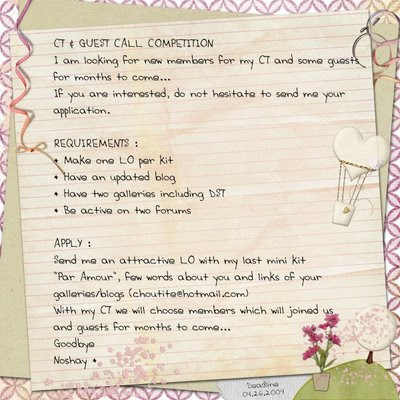 CT & GUEST CALL COMPETITION
I am looking for new members for my CT and some guests
for months to come...
If you are interested, do not hesitate to send me your
application.
REQUIREMENTS :
* Make one LO per kit
* Have an updated blog
* Have two galleries including DST
* Be active on two forums
APPLY :
Send me an attractive LO with my last mini kit
"Par Amour", few words about you and links of your
galleries/blogs (choutite@hotmail.com)
With my CT we will choose members which will joined us
and guests for months to come...
Goodbye
Noshay *
Deadline
04.26.2009